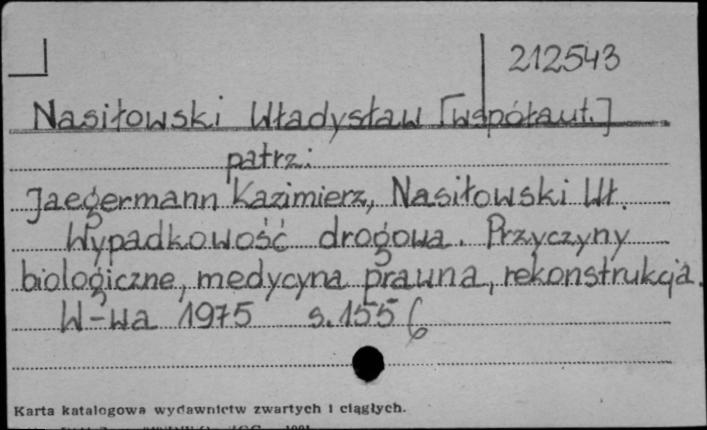 212543
Nasiłowski Władysław [współaut.]
patrz:
Jaegermann Kazimierz, Nasiłowski Wł.
Wypadkowość drogowa. Przyczyny
biologiczne, medycyna prawna, rekonstrukcja.
W-wa 1975 s. 155
Karta katalogowa wydawnictw zwartych i ciągłych.